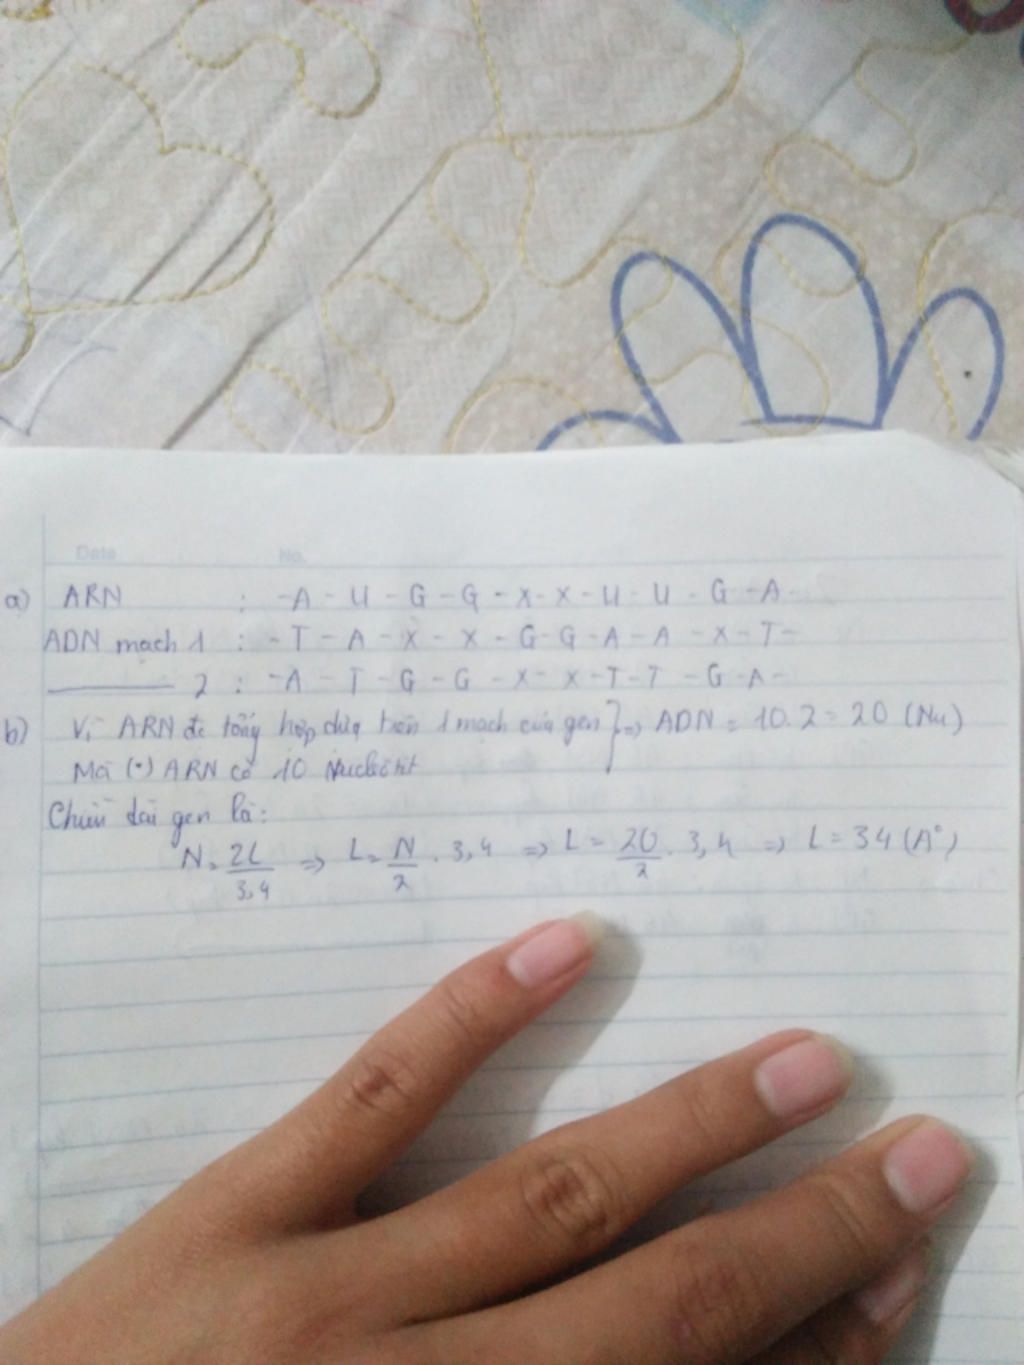 Date No.
a) ARN : -A-U-G-G-X-X-U-U-G-A-
ADN mạch 1 : -T-A-X-X-G-G-A-A-X-T-
2 : -A-T-G-G-X-X-T-T-G-A-
b) Vì ARN đc tổng hợp dựa trên 1 mạch của gen } => ADN = 10.2 = 20 (Nu)
Mà (*) ARN có 10 Nucleotit
Chiều dài gen là:
N = 2L/3,4 => L = N/2 . 3,4 => L = 20/2 . 3,4 => L = 34 (A°)